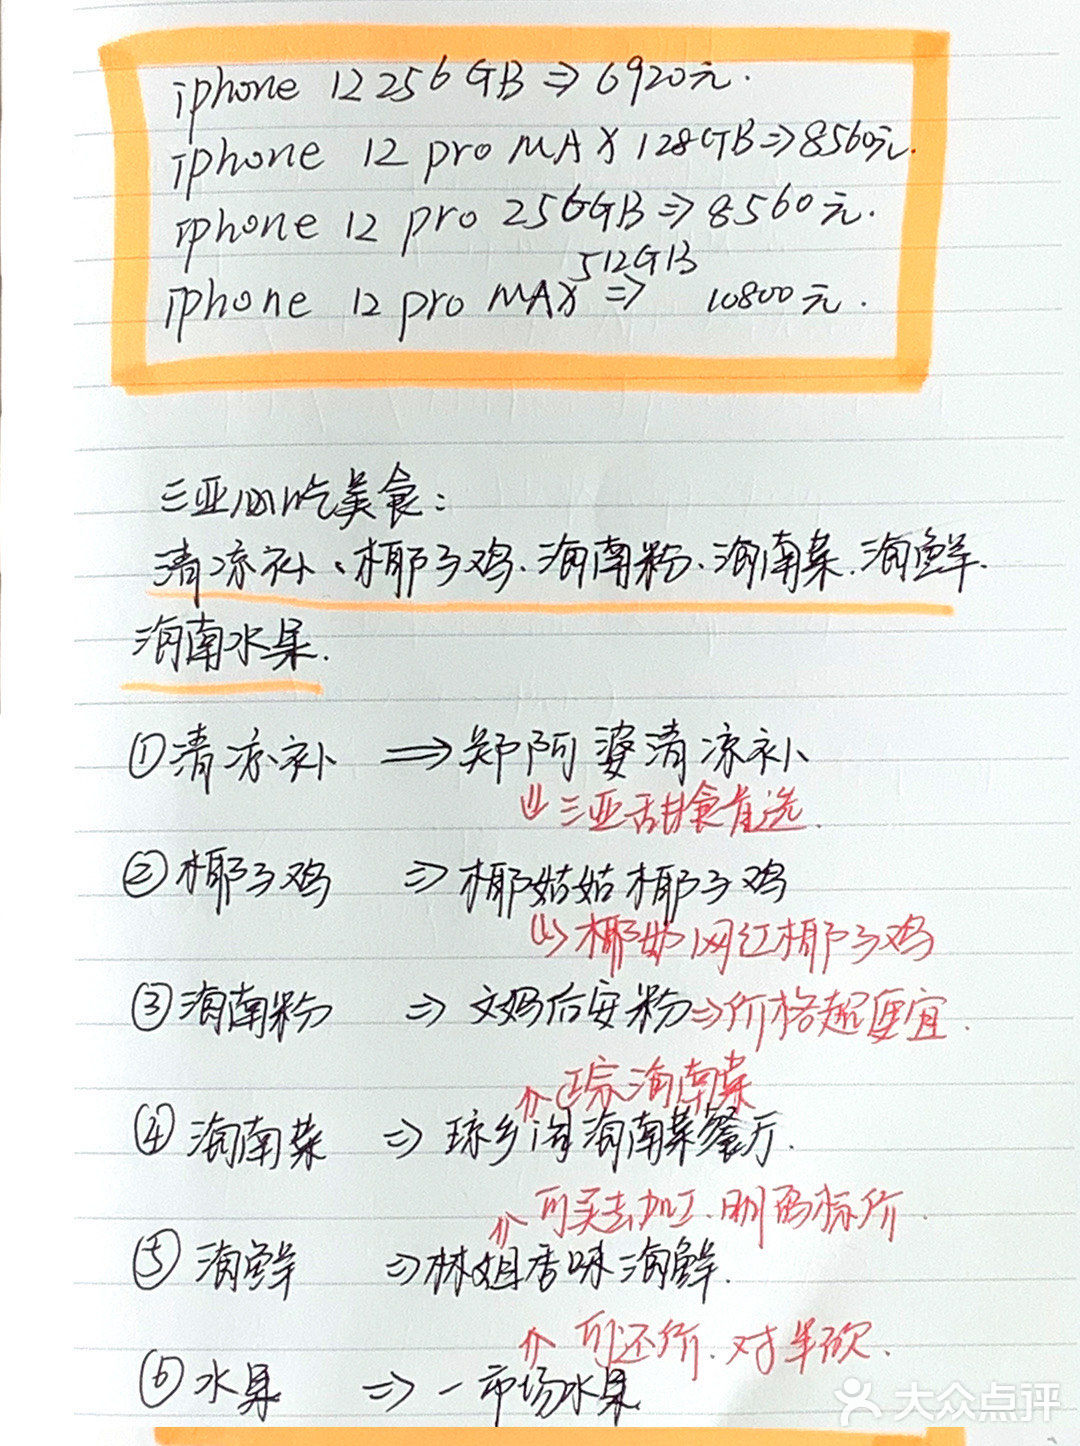 iphone 12 256GB ⇒ 6920元.
iphone 12 pro MAX 128GB⇒8560元.
iphone 12 pro 256GB⇒8560元.
512GB
iphone 12 pro MAX ⇒ 10800元.
三亚必吃美食:
清凉补、椰子鸡.海南粉.海南菜.海鲜.
海南水果.
①清凉补 ⇒郑阿婆清凉补
⇓三亚甜食首选.
②椰子鸡 ⇒椰姑姑椰子鸡
↳椰奶网红椰子鸡
③海南粉 ⇒文妈后安粉⇒价格超便宜.
⇑正宗海南菜
④海南菜 ⇒琼乡阁海南菜餐厅.
⇑可买去加工.明码标价.
⑤海鲜 ⇒林姐香味海鲜.
⇑可还价.对半砍.
⑥水果 ⇒一市场水果
大众点评